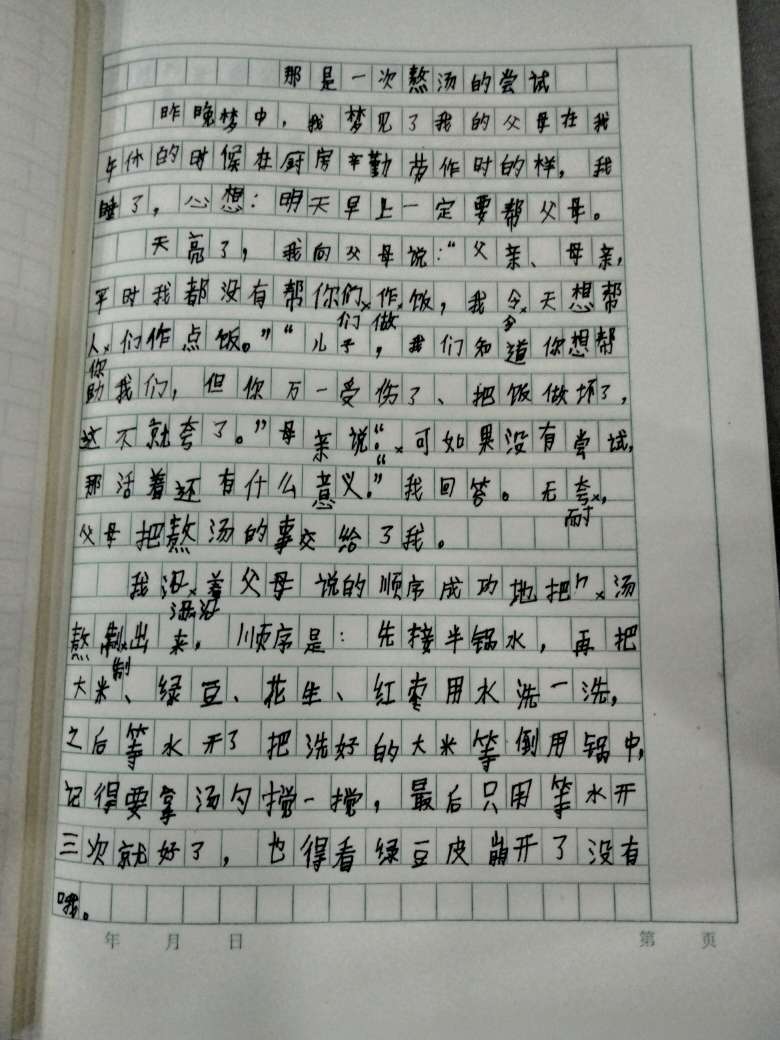 那是一次熬汤的尝试
昨晚梦中，我梦见了我的父母在我
午休的时候在厨房辛勤劳作时的样，我
睡了，心想：明天早上一定要帮父母。
天亮了，我向父母说：“父亲、母亲，
平时我都没有帮你们作饭，我今天想帮
们做
今
人们作点饭。”“儿子，我们知道你想帮
你
助我们，但你万一受伤了、把饭做坏了，
这不就夸了。”母亲说“可如果没有尝试，
“
那活着还有什么意义”我回答。无夸，
耐
父母把熬汤的事交给了我。
我沿着父母说的顺序成功地把汤
沿
熬制出来。顺序是：先接半锅水，再把
制
大米、绿豆、花生、红枣用水洗一洗，
之后等水开了把洗好的大米等倒用锅中，
记得要拿汤勺搅一搅，最后只用等水开
三次就好了，也得看绿豆皮崩开了没有
哦。
年 月 日 第 页